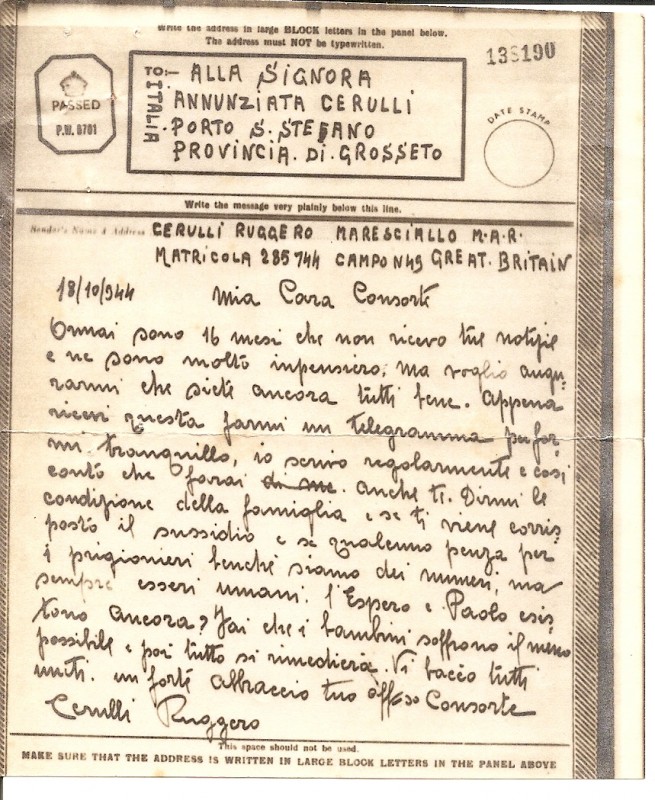 Write the address in large BLOCK letters in the panel below.
The address must NOT be typewritten.
138190
PASSED
P.W. 8701
TO:-
ITALIA
ALLA SIGNORA
ANNUNZIATA CERULLI
PORTO S. STEFANO
PROVINCIA. DI. GROSSETO
DATE STAMP
Write the message very plainly below this line.
Sender's Name & Address
CERULLI RUGGERO MARESCIALLO M.A.R.
MATRICOLA 285744 CAMPO N49 GREAT. BRITAIN
18/10/944 Mia Cara Consorte
Ormai sono 16 mesi che non ricevo tue notizie
e ne sono molto inpensiero, ma voglio augu-
rarmi che siete ancora tutti bene. Appena
ricevi questa farmi un telegramma per far
mi tranquillo, io scrivo regolarmente e così
conto che farai di me. anche te. Dirmi le
condizione della famiglia e se ti viene corris-
posto il sussidio e se qualcuno penza per
i prigionieri benchè siamo dei numeri, ma
sempre esseri umani. l'Espero e Paolo esis
tono ancora? Fai che i bambini soffrono il meno
possibile e poi tutto si rimedierà. Vi bacio tutti
uniti. un forte abbraccio tuo aff.so Consorte
Cerulli Ruggero
This space should not be used.
MAKE SURE THAT THE ADDRESS IS WRITTEN IN LARGE BLOCK LETTERS IN THE PANEL ABOVE